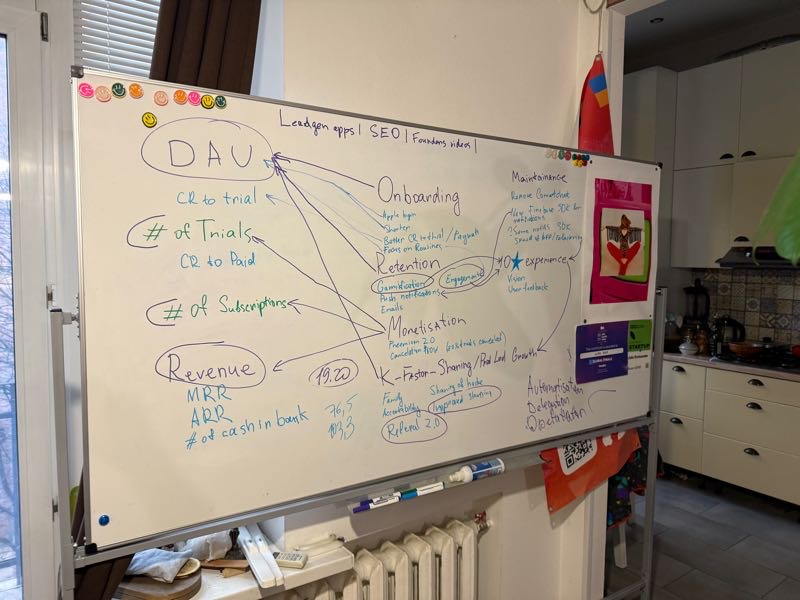 Leadgen apps | SEO | Founders videos |
DAU
CR to trial
# of Trials
CR to Paid
# of Subscriptions
Revenue
MRR
ARR
# of cash in bank
19.20
76,5
103,3
Onboarding
Apple login
Shorter
Better CR to trial / Paywall
Focus on Routines
Retention
Gamification
Engagement
Push notifications
Emails
Monetisation
Freemium 2.0
Cancelation flow
K-Factor - Sharing / Prod Led Growth
Family
Accountability
Sharing of
improved sharing
Referral 2.0
Maintainance
Remove
New Firebase SDK for
notifications
experience
Vision
User feedback
Automatisation
Delegation
STARTUP